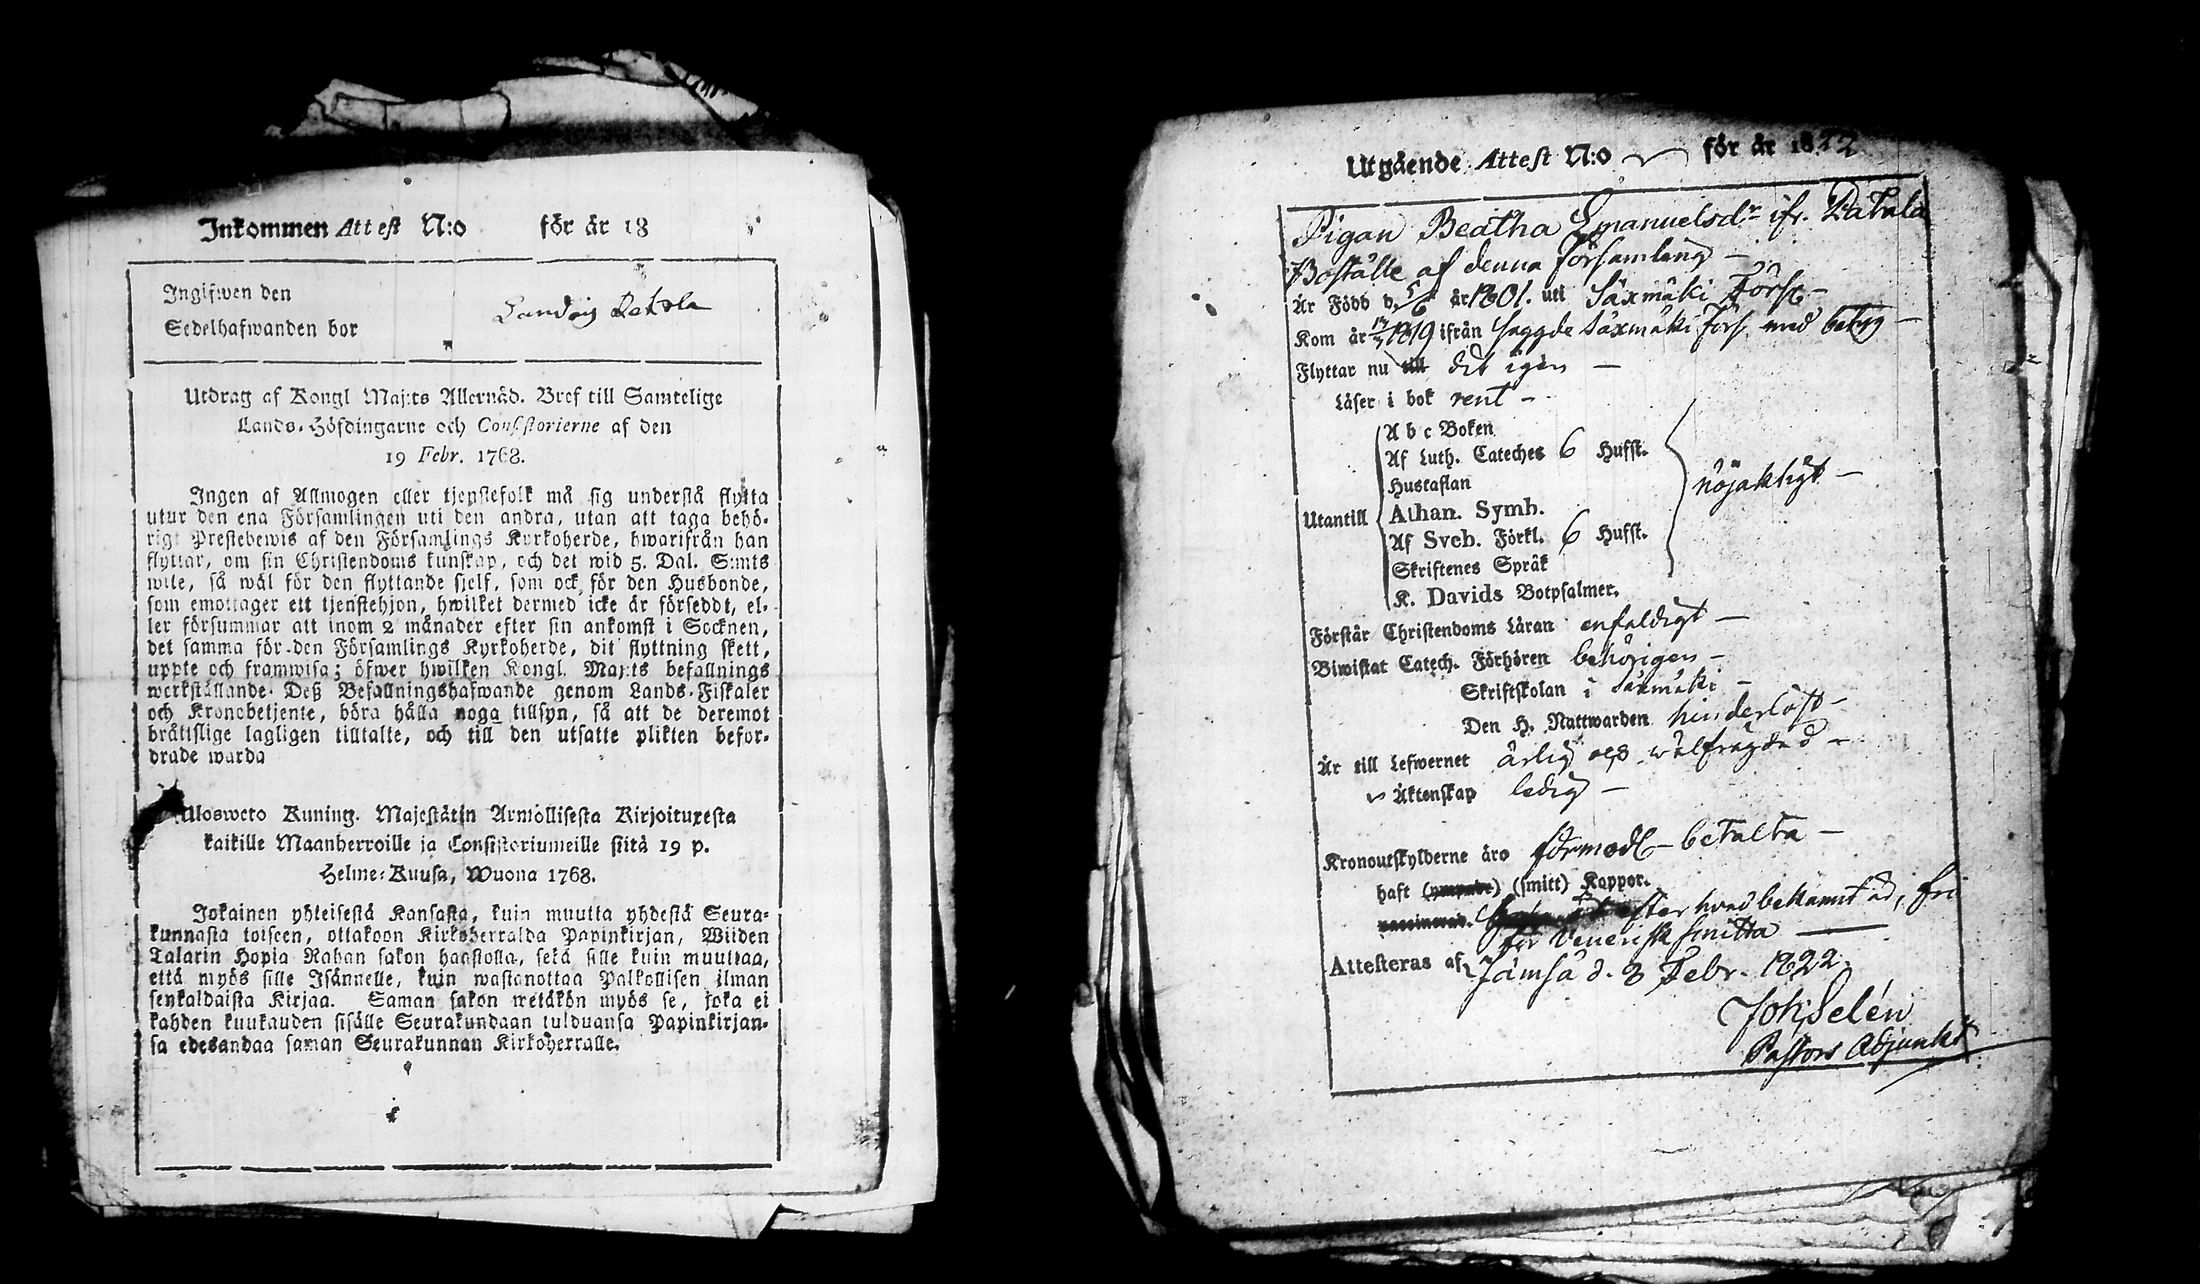 Inkommen Attest N:o för år 18
Ingifwen den
Sedelhafwanden bor
Utdrag af Kongl Maj:ts Allernåd. Bref till Samtelige
Lands-Höfdingarne och Consistorierne af den
19 Febr. 1768.
Ingen af Allmogen eller tjenstefolk må sig understå flytta
utur den ena Församlingen uti den andra, utan att taga behö-
rigt Prestebewis af den Församlings Kyrkoherde, hwarifrån han
flyttar, om sin Christendoms kunskap, och det wid 5. Dal. S:mts
wite, så wäl för den flyttande sjelf, som ock för den Husbonde,
som emottager ett tjenstehjon, hwilket dermed icke är försedt, el-
ler försummar att inom 2 månader efter sin ankomst i Socknen,
det samma för den Församlings Kyrkoherde, dit flyttning skett,
uppte och framwisa; öfwer hwilken Kongl. Maj:ts befallnings
werkställande Deß Befallningshafwande genom Lands-Fiskaler
och Kronobetjente, böra hålla noga tillsyn, så att de deremot
bråttslige lagligen tilltalte, och till den utsatte plikten befor-
drade warda
Ulosweto Kuning. Majestätin Armollisesta Kirjoituxesta
kaikille Maanherroille ja Consistoriumeille siitä 19 p.
Helme-Kuusa, Wuona 1768.
Jokainen yhteisestä Kansasta, kuin muutta yhdestä Seura-
kunnasta toiseen, ottakoon Kirkoherralda Papinkirjan, Wiiden
Talarin Hopia Rahan sakon haastolla, sekä sille kuin muuttaa,
että myös sille Isännelle, kuin wastanottaa Palkollisen ilman
senkaldaista Kirjaa. Saman sakon wetäkön myös se, joka ei
kahden kuukauden sisälle Seurakundaan tulduansa Papinkirjan-
sa edesandaa saman Seurakunnan Kirkoherralle.
Utgående Attest N:o för år 1822
Pigan Beatha Emanuelsdr ifr. Patala
Boställe af denna Församling –
Är Född d. 5/6 år 1801. uti Säxmäki Förs. –
Kom år 1819 ifrån sagde Säxmäki Förs. med betyg –
Flyttar nu till dit igen –
Läser i bok rent –
A b c Boken
Af Luth. Cateches 6 Hufst.
Hustaflan
Utantill Athan. Symb. nöjaktigt –
Af Sveb. Förkl. 6 Hufst.
Skriftenes Språk
K. Davids Botpsalmer.
Förstår Christendoms Läran enfaldigt –
Biwistat Catech. Förhören behörigen –
Skriftskolan i Säxmäki –
Den H. Nattwarden hinderlöst –
Är till Lefwernet ärlig och wälfrägdad –
Äktenskap ledig –
Kronoutskylderne äro förmodl. betalta –
haft (ympade) (smitt) Koppor.
vaccinerad. efter hvad bekant är, fri
för Venerisk smitta –
Attesteras af Jämsä d. 8 Febr. 1822.
Joh. Selén
Pastors Adjunkt